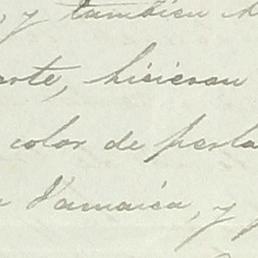 , y tambien
arte, hicieron
color de perla
Jamaica, y